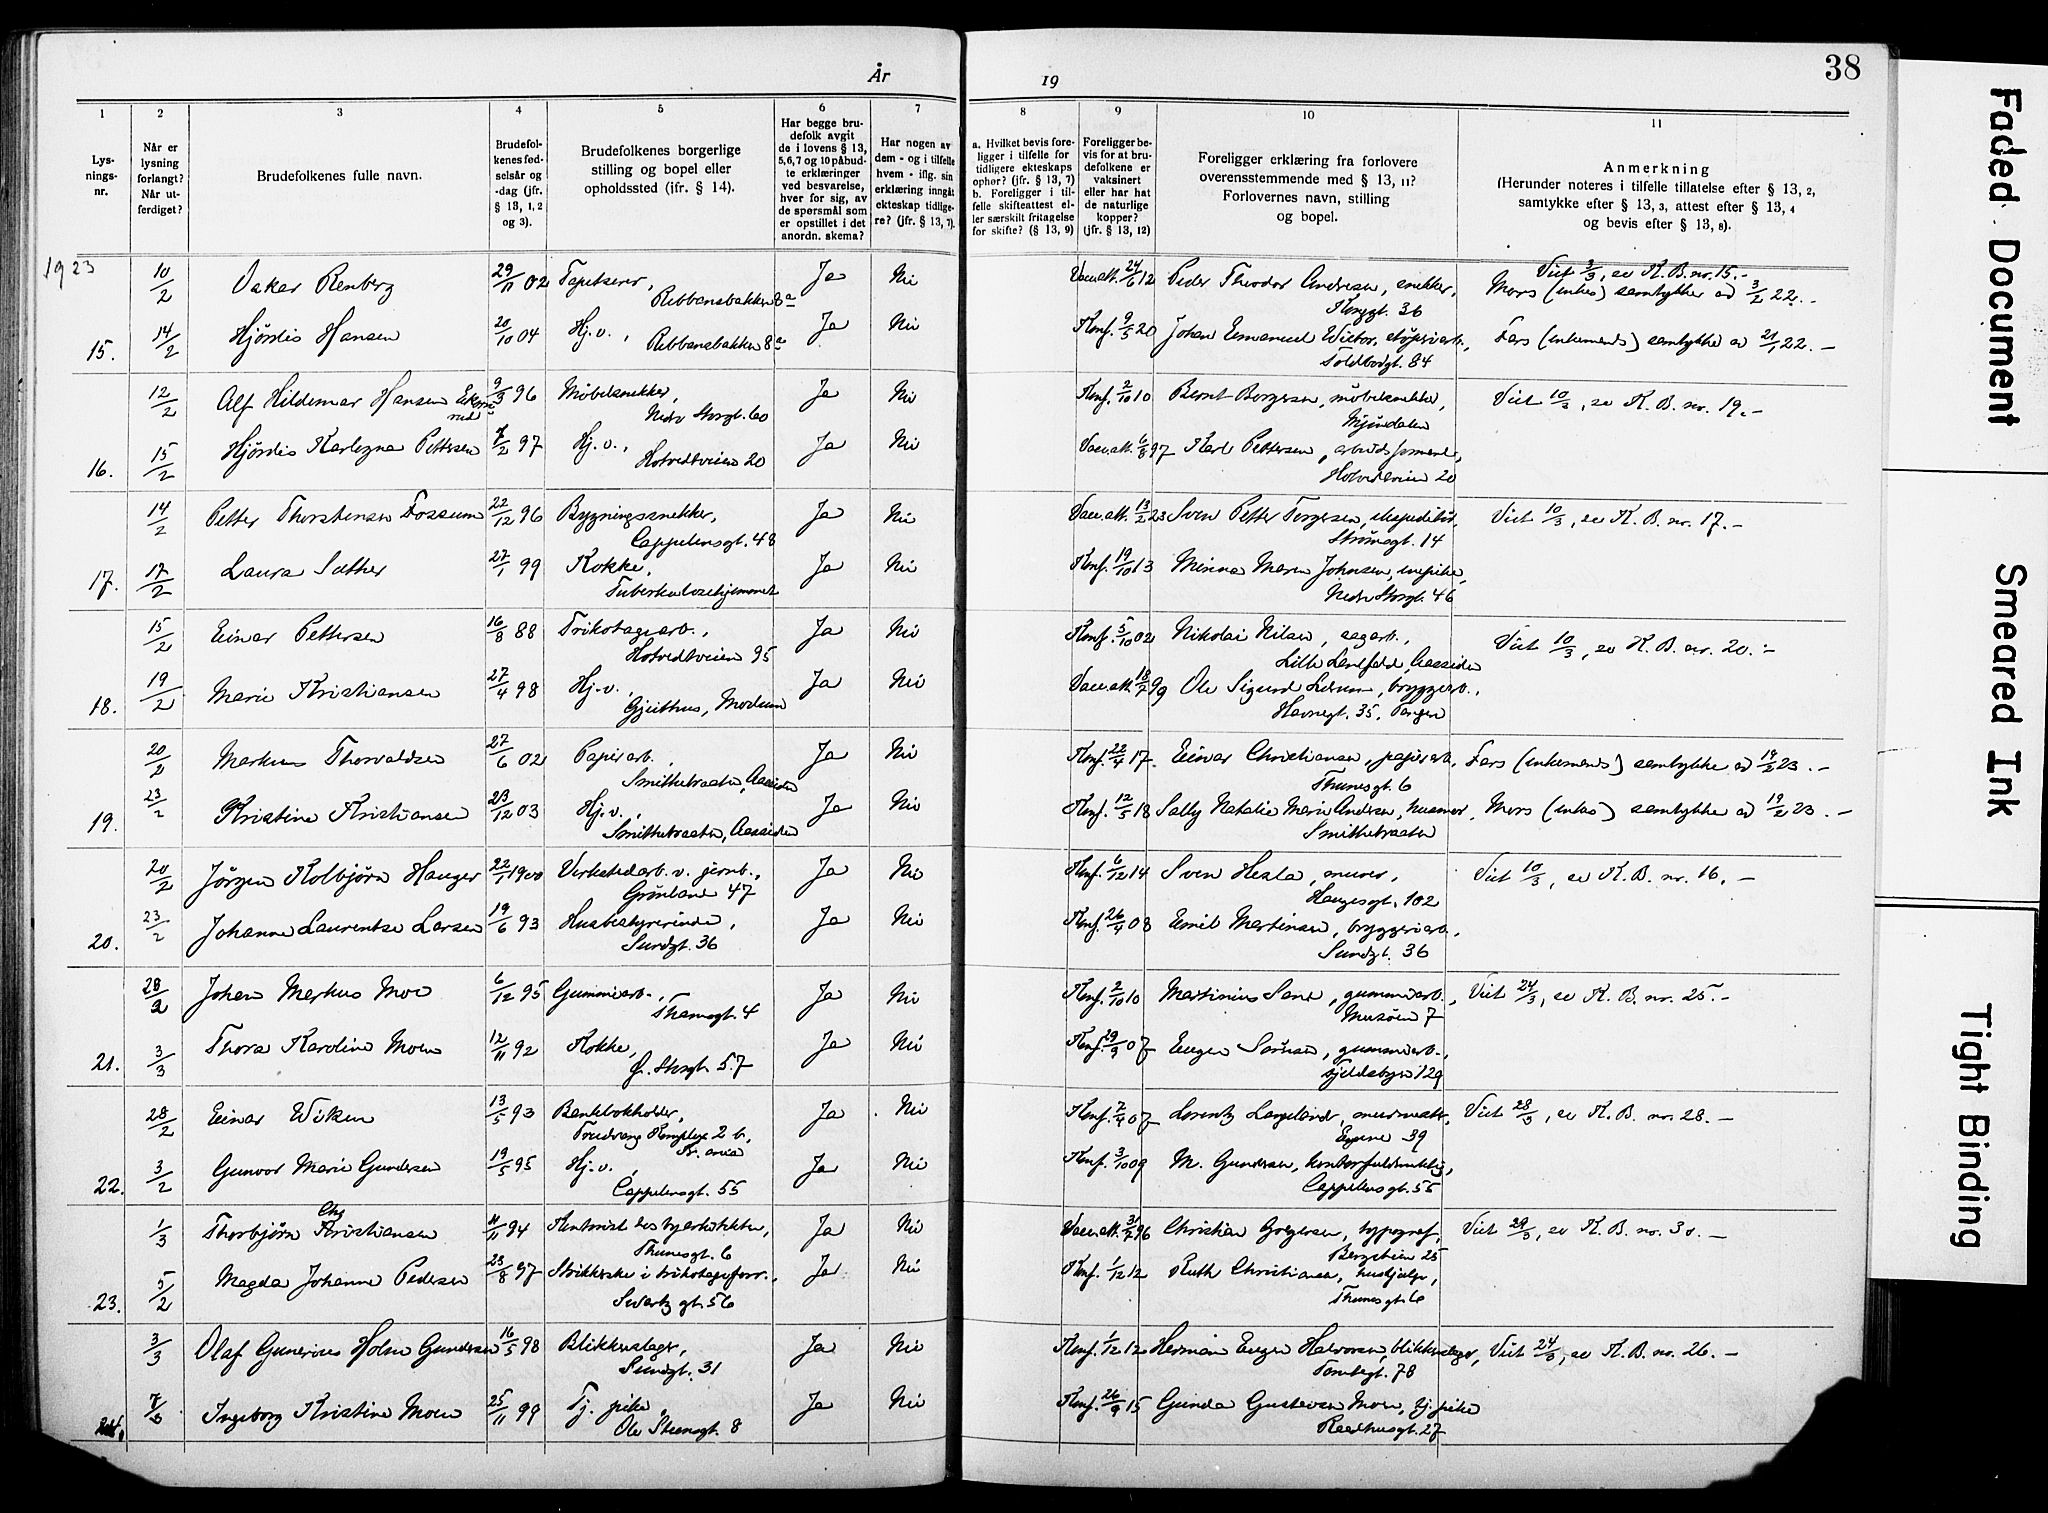 38
År
19
1
2
3
4
5
6
7
8
9
10
11
Lys-
nings-
nr.
Når er
lysning
forlangt?
Når ut-
ferdiget?
Brudefolkenes fulle navn.
Brudefol-
kenes fød-
selsår og
-dag (jfr.
§ 13, 1, 2
og 3).
Brudefolkenes borgerlige
stilling og bopel eller
opholdssted (jfr. § 14).
Har begge bru-
defolk avgit
de i lovens § 13,
5,6,7 og 10 påbud-
te erklæringer
ved besvarelse,
hver for sig, av
de spørsmål som
er opstillet i det
anordn. skema?
Har nogen av
dem - og i tilfelle
hvem - iflg. sin
erklæring inngått
ekteskap tidlige-
re? (jfr. § 13, 7).
a. Hvilket bevis fore-
ligger i tilfelle for
tidligere ekteskaps
ophør? (jfr. § 13, 7)
b. Foreligger i til-
felle skifteattest el-
ler særskilt fritagelse
for skifte? (§ 13, 9)
Foreligger be-
vis for at bru-
defolkene er
vaksinert
eller har hat
de naturlige
kopper?
(jfr. § 13, 12)
Foreligger erklæring fra forlovere
overensstemmende med § 13, 11?
Forlovernes navn, stilling
og bopel.
Anmerkning
(Herunder noteres i tilfelle tillatelse efter § 13, 2,
samtykke efter § 13, 3, attest efter § 13, 4
og bevis efter § 13, 8).
1923
10/2 Oskar Renberg 29/11 02 Tapetserer, Ja Nei Vacc.att. 24/6 12 Peder Theodor Andresen, snekker, Viet 3/3, se K.B. nr. 15.-
Ribbansbakken 8a Konggt. 36 Mors (enkes) samtykke av 3/2 22.-
15. 14/2 Hjørdis Hansen 20/10 04 Hj.v., Ribbansbakken 8a Ja Nei Konf. 9/5 20 Johan Emanuel Wictor, støperiarb., Fars (enkemands) samtykke av 21/1 22.-
Toldbodgt. 84
12/2 Alf Hildemar Hansen 9/3 96 Møbelsnekker, Ja Nei Konf. 2/10 10 Bernt Borgersen, møbelsnekker, Viet 10/3, se K.B. nr. 19.-
Nedre Storgt. 60 Mjøndalen
16. 15/2 Hjørdis Pettersen 7/2 97 Hj.v., Ja Nei Vacc.att. 6/8 97 Karl Pettersen, arbeidsformand,
Hotvedtveien 20 Hotvedtveien 20
14/2 Petter Thorstensen Fossum 22/12 96 Bygningssnekker, Ja Nei Vacc.att. 13/2 23 Sven Petter Torgersen, ekspeditør, Viet 10/3, se K.B. nr. 17.-
Cappelensgt. 48 Strømsgt. 14
17. 17/2 Laura Sæther 27/1 99 Kokke, Ja Nei Konf. 19/10 13 Minna Marie Johnsen, enepike,
Tuberkulosehjemmet Nedre Storgt. 46
15/2 Einar Pettersen 16/8 88 Trikotagearb., Ja Nei Konf. 5/10 02 Nikolai Nilsen, sagarb., Viet 10/3, se K.B. nr. 20.-
Hotvedtveien 95 Lille Landfald, Aassiden
18. 19/2 Marie Kristiansen 27/4 98 Hj.v., Ja Nei Vacc.att. 18/2 99 Ole Sigurd, bryggearb.,
Gjeithus, Modum Havnegt. 35, Tangen
20/2 Markus Thorvaldsen 27/6 02 Papirarb., Ja Nei Konf. 22/4 17. Einar Christiansen, papirarb., Fars (enkemands) samtykke av 19/2 23.-
Smittebraaten, Aassiden Thunesgt. 6
19. 23/2 Kristine Kristiansen 23/12 03 Hj.v., Ja Nei Konf. 12/5 18 Sally Natalie Marie Andersen, husmor, Mors (enkes) samtykke av 19/2 23.-
Smittebraaten, Aassiden Smittebraaten
20/2 Jørgen Kolbjørn Hauger 22/1 1900 Verkstedarb. v. jernb., Ja Nei Konf. 6/12 14 Sven Hesla, murer, Viet 10/3, se K.B. nr. 16.-
Grønland 47 Haugesgt. 102
20. 23/2 Johanne Laurentse Larsen 19/6 93 Husbestyrerinde, Ja Nei Konf. 26/4 08 Emil Martinsen, bryggeriarb.,
Sundgt. 36 Sundgt. 36
28/2 Johan Markus Moe 6/12 95 Gummiarb., Ja Nei Konf. 2/10 10 Martinius Sand, gummiarb., Viet 24/3, se K.B. nr. 25.-
Thamsgt. 4 Musøen 7
21. 3/3 Thora Karoline Moen 12/11 92 Kokke, Ja Nei Konf. 29/9 07 Eugen Sørnsen, gummiarb.,
Ø. Storgt. 57 Fjeldsbyen 129
28/2 Einar Wiken 13/5 93 Bankbokholder, Ja Nei Konf. 7/4 07 Lorentz Langeland, murmester, Viet 28/3, se K.B. nr. 28.-
Trudvang Kompleks 2 b, Kr.ania 39
22. 3/2 Gunvor Marie Gundersen 19/5 95 Hj.v., Ja Nei Konf. 3/10 09 M. Gundersen, kontorfuldmektig,
Cappelensgt. 55 Cappelensgt. 55
Chr
1/3 Thorbjørn Kristiansen 11/11 94 Kontorist hos byarkitekten, Ja Nei Vacc.att. 31/7 96 Christian Borgersen, typograf, Viet 29/3, se K.B. nr. 30.-
Thunesgt. 6 Bergstien 25
23. 5/2 Magda Johanne Pedersen 23/8 97 Strikkerske i trikotageforr., Ja Nei Konf. 1/12 12 Ruth Christiansen, hushjelp,
Swartz gt. 56 Thunesgt. 6
3/3 Olaf Gunerius Holm Gundersen 16/5 98 Blikkenslager, Ja Nei Konf. 1/12 12 Herman Eugen Halvorsen, blikkenslager, Viet 24/3, se K.B. nr. 26.-
Sundgt. 31 Tomtegt. 78
24. 7/3 Ingeborg Kristine Moen 25/11 99 Tj. pike, Ja Nei Konf. 26/9 15 Gunda Gustavsen Moen, tj.pike
Ole Steensgt. 8 Raadhusgt. 27
Faded Document
Smeared Ink
Tight Binding